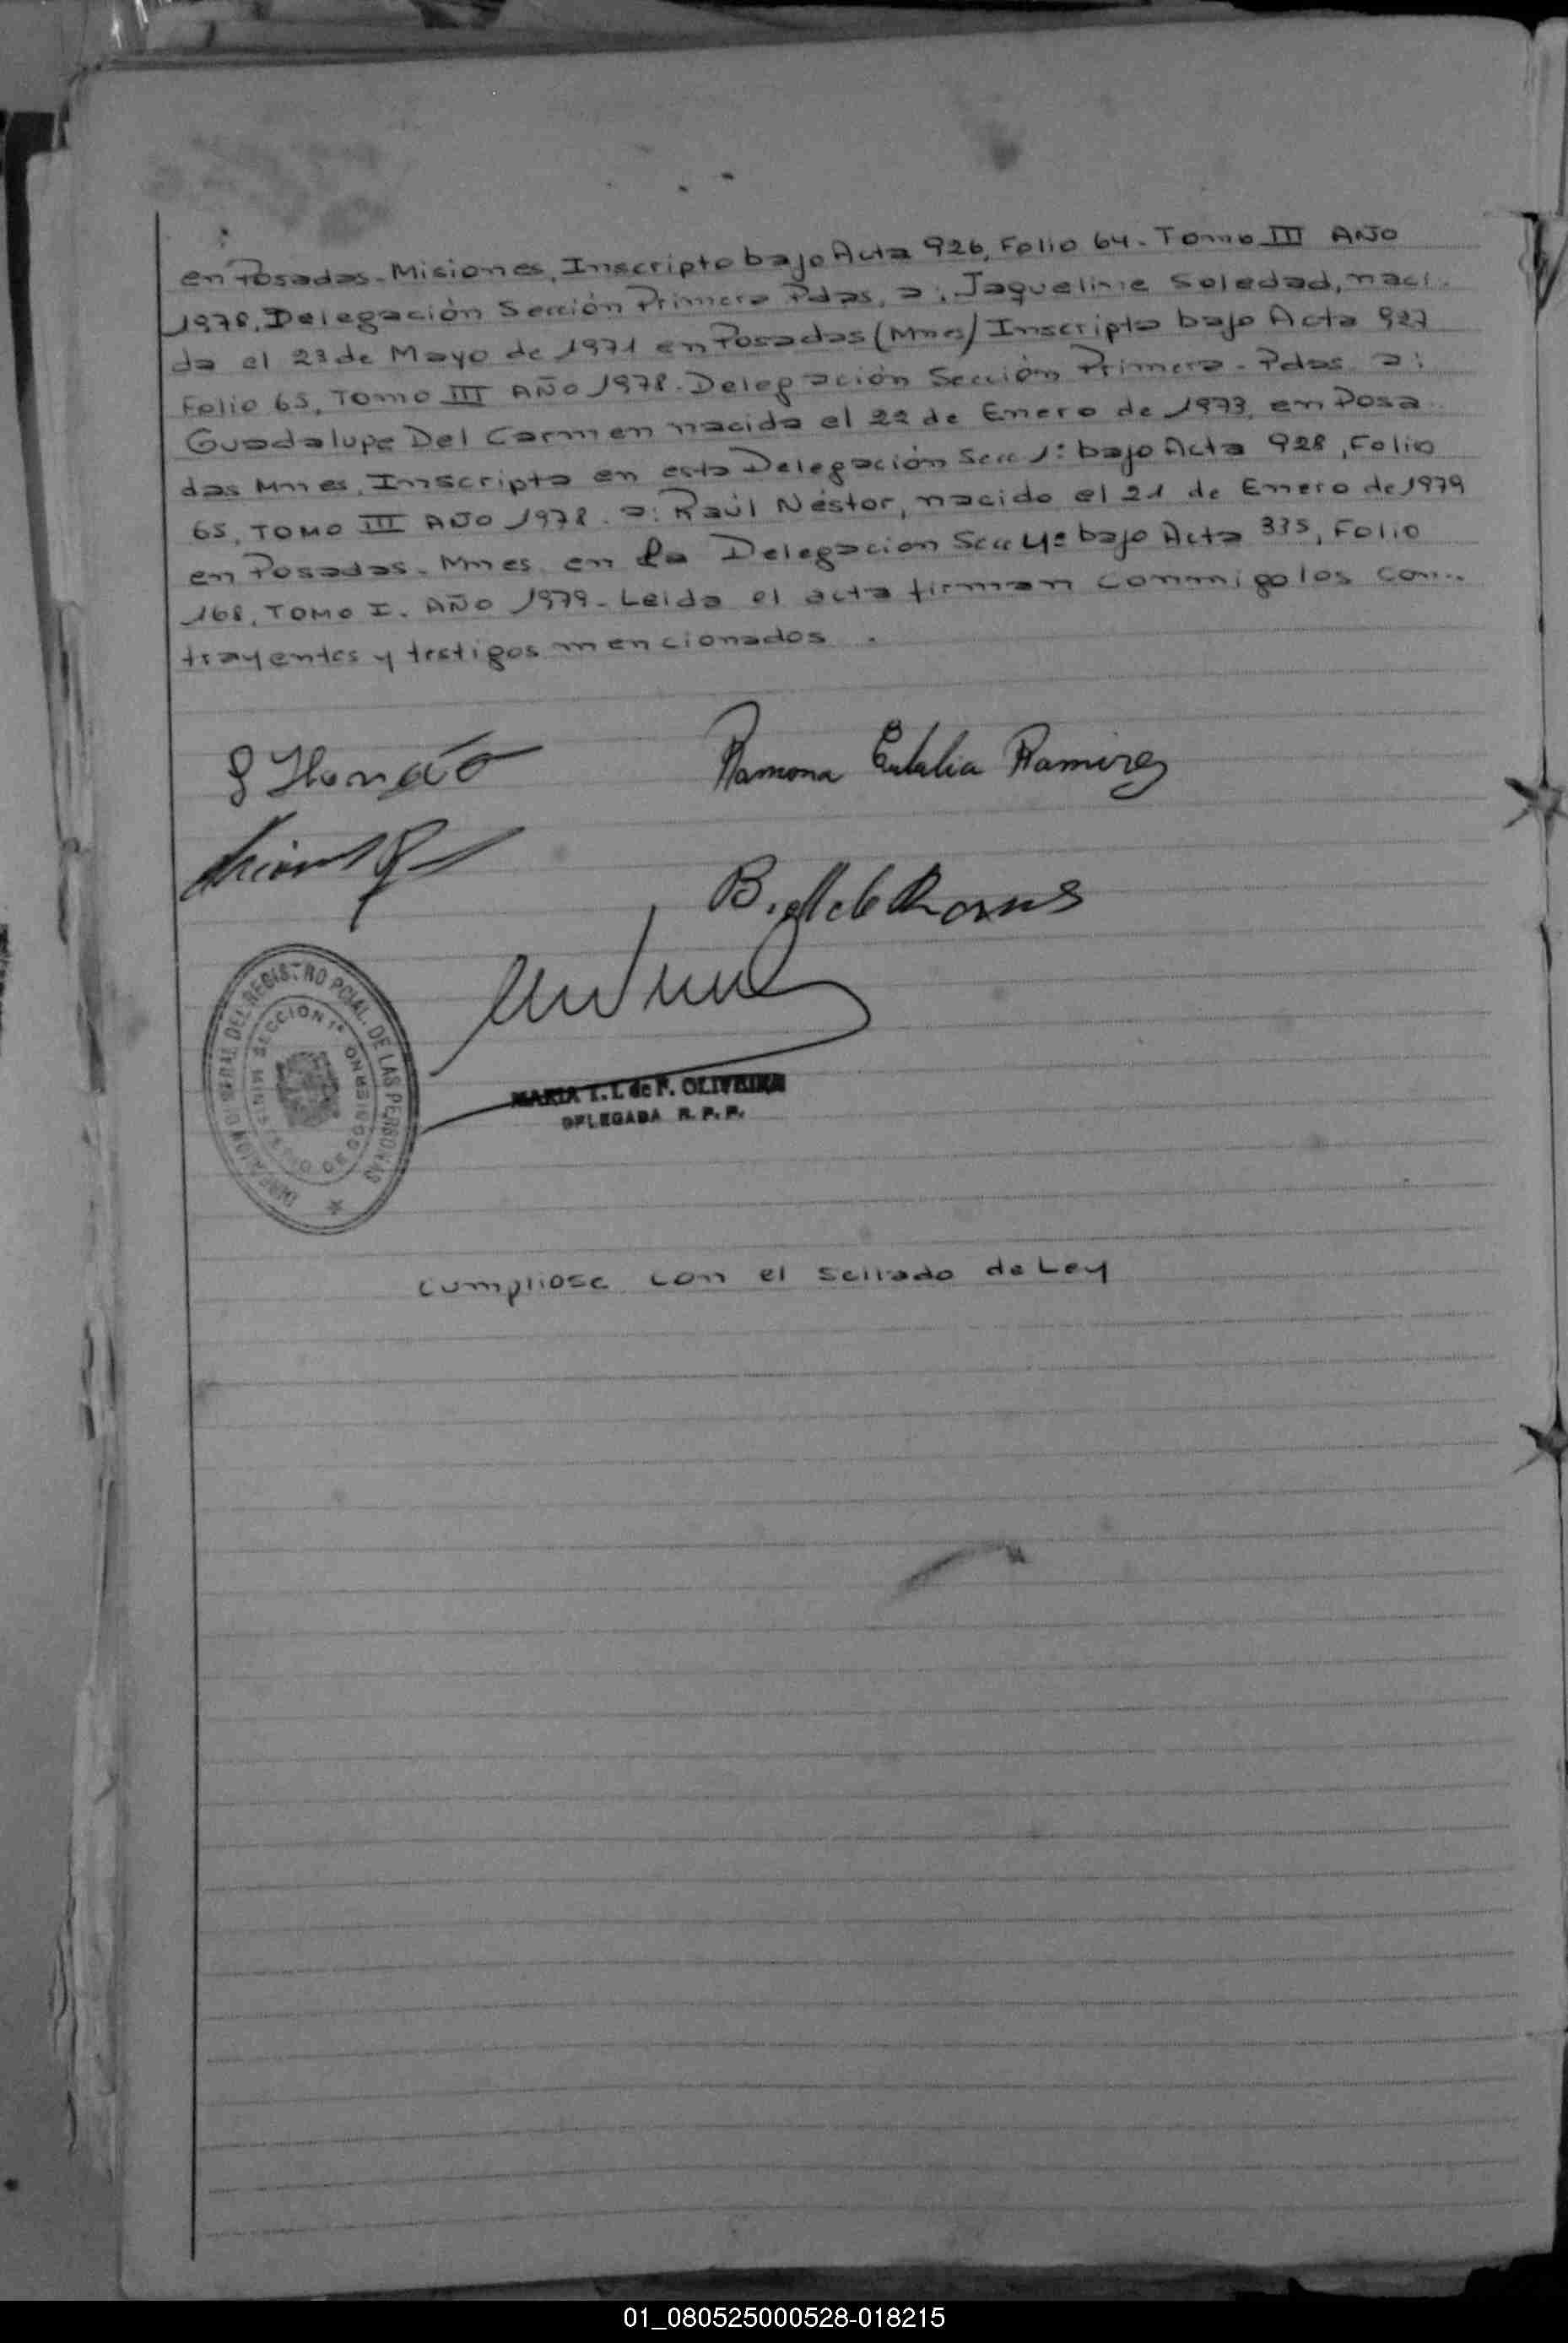 en Posadas - Misiones, Inscripto bajo Acta 926, Folio 64 - Tomo III AÑO
1978, Delegación Sección Primera Pdas, a: Jaqueline Soledad, naci-
da el 23 de Mayo de 1971 en Posadas (Mnes) Inscripta bajo Acta 927
Folio 65, TOMO III AÑO 1978 - Delegación Sección Primera - Pdas a:
Guadalupe Del Carmen nacida el 22 de Enero de 1973, en Posa-
das Mnes, Inscripta en esta Delegación Secc 1ª bajo Acta 928, Folio
65, TOMO III AÑO 1978. a: Raúl Néstor, nacido el 21 de Enero de 1979
en Posadas - Mnes en la Delegacion Secc 4ª bajo Acta 335, Folio
168, TOMO I. AÑO 1979 - Leida el acta firman conmigo los con-
trayentes y testigos mencionados.
Ramona Eulalia Ramirez
DIRECCION GENERAL DEL REGISTRO PCIAL. DE LAS PERSONAS
SECCION 1ª
MINISTERIO DE GOBIERNO
MARIA I. I. de F. OLIVEIRA
DELEGADA R. P. P.
cumpliose con el sellado de Ley
01_080525000528-018215